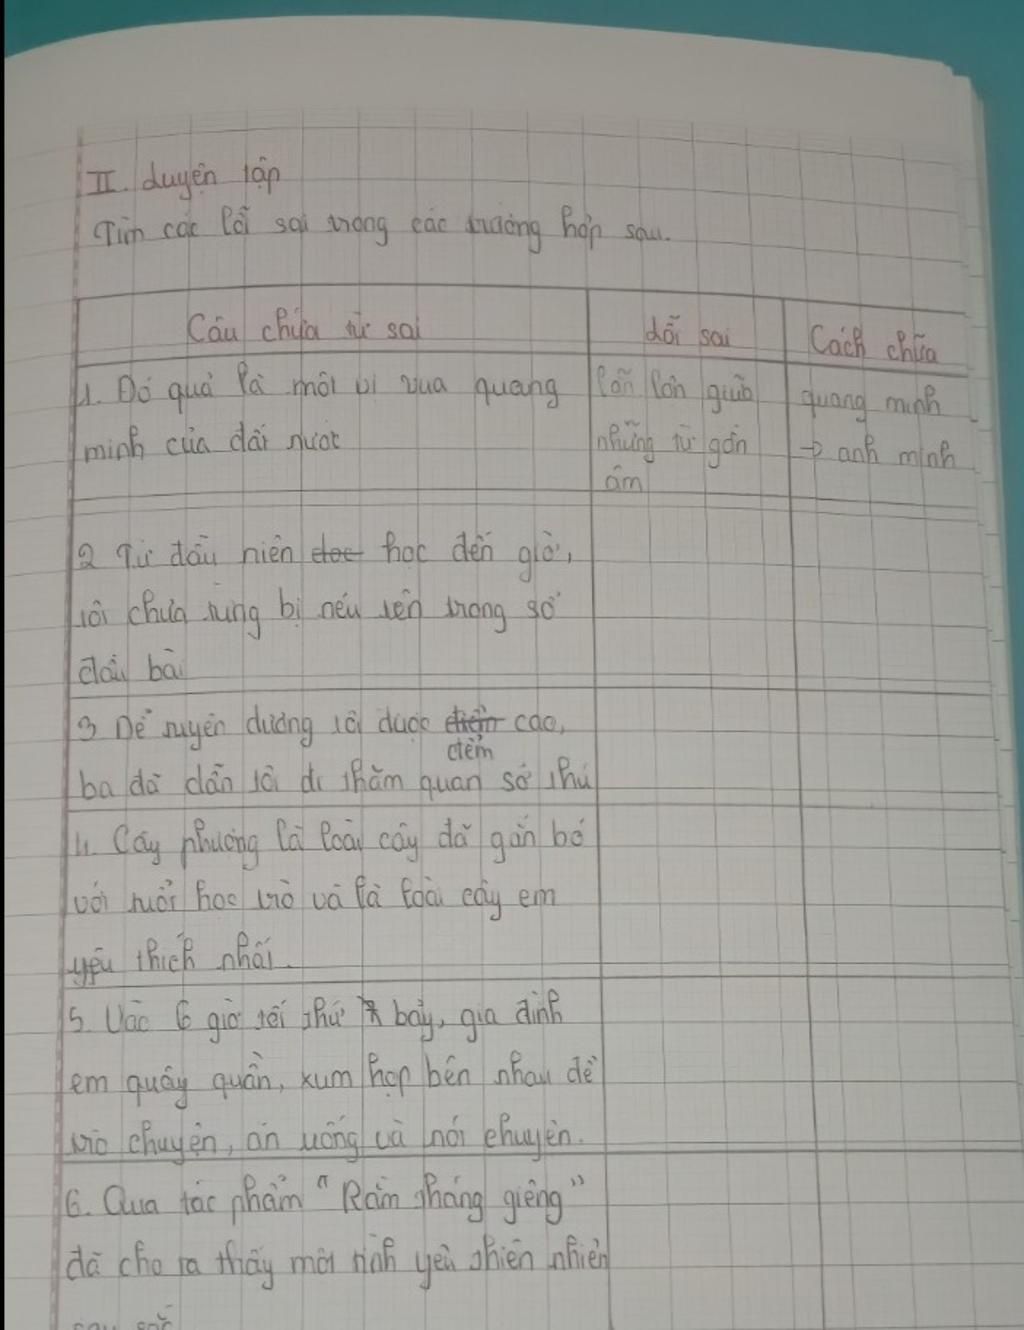 II. Luyện tập
Tìm các lỗi sai trong các trường hợp sau.
Câu chứa từ sai | Lỗi sai | Cách chữa
1. Đó quả là một vị vua quang | Lẫn lộn giữa | quang minh
minh của đất nước | những từ gần | → anh minh
âm
2 Từ đầu niên học đến giờ,
tôi chưa từng bị nêu tên trong sổ
đầu bài
3 Để tuyên dương tôi được điểm cao,
ba đã dẫn tôi đi thăm quan sở thú
4. Cây phượng là loài cây đã gắn bó
với tuổi học trò và là loài cây em
yêu thích nhất.
5. Vào 6 giờ tối thứ bảy, gia đình
em quây quần, xum họp bên nhau để
trò chuyện, ăn uống và nói chuyện.
6. Qua tác phẩm "Rằm tháng giêng"
đã cho ta thấy một tình yêu thiên nhiên